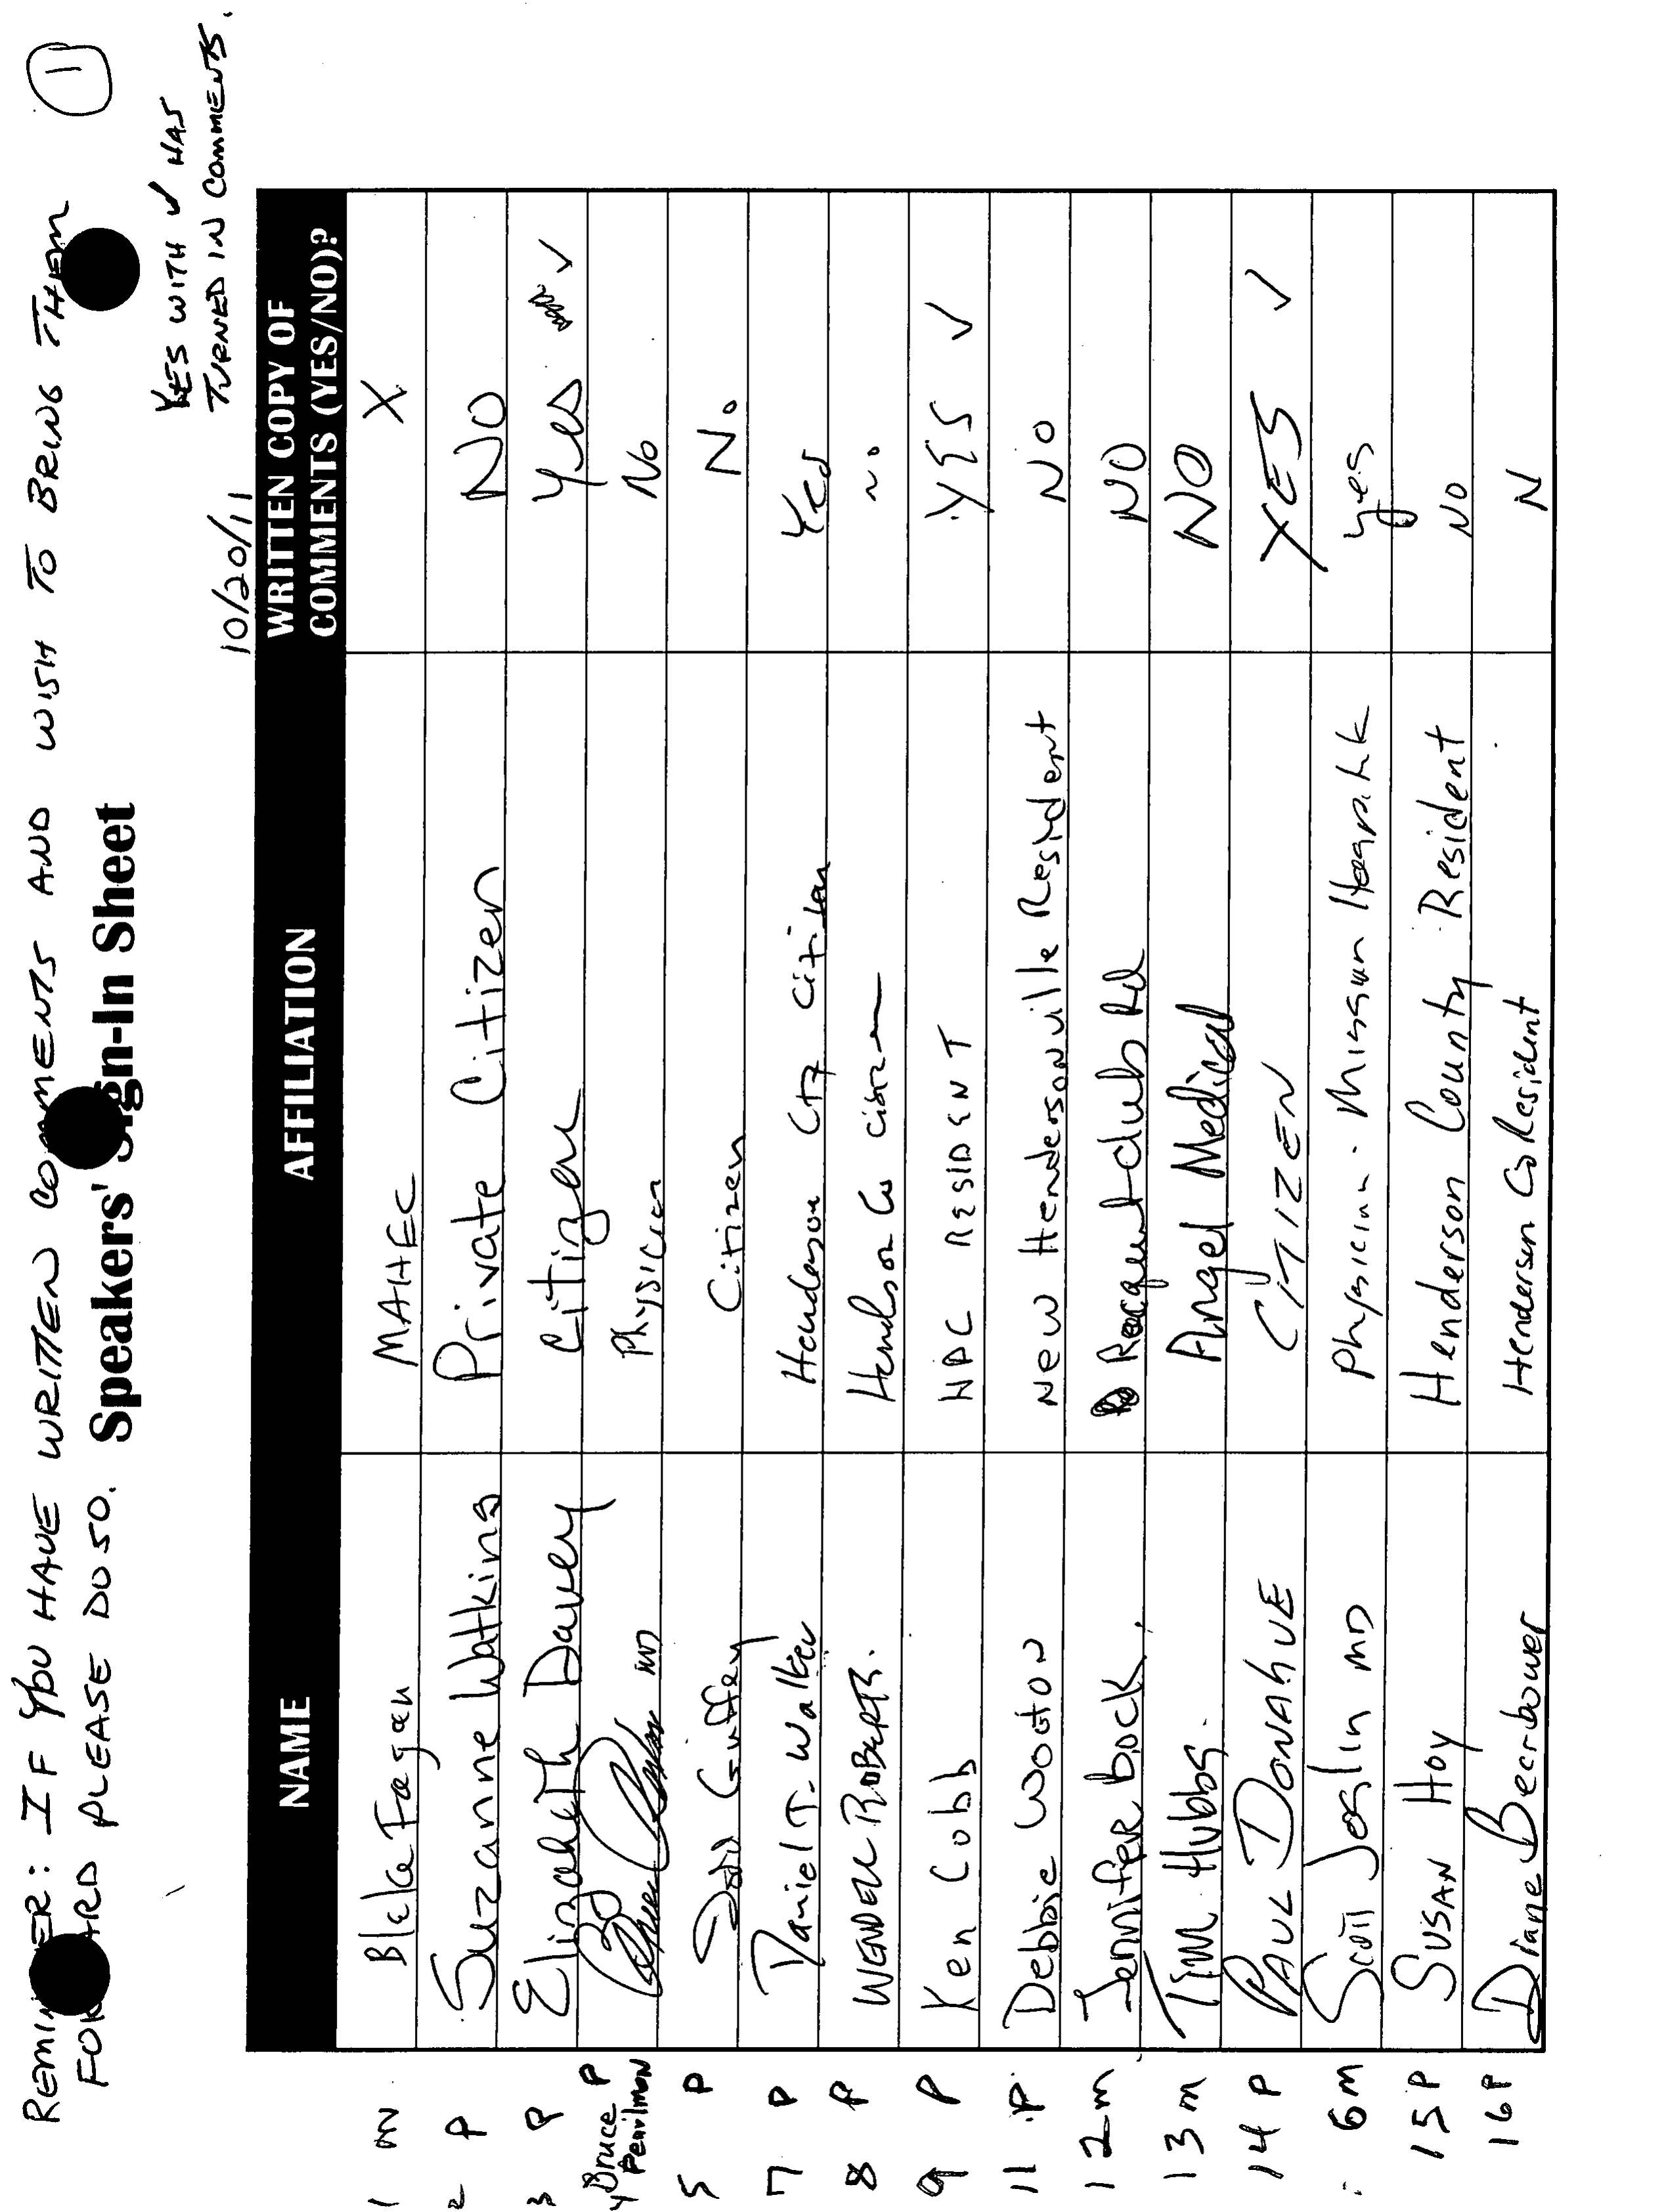 REMINDER: IF YOU HAVE WRITTEN COMMENTS AND WISH TO BRING THEM
FORWARD PLEASE DO SO.
1
Speakers' Sign-In Sheet
YES WITH ✓ HAS
TURNED IN COMMENTS.
10/20/11
NAME AFFILIATION WRITTEN COPY OF COMMENTS (YES/NO)?
1 m Blake Fagan MAHEC X
2 P Suzanne Watkins Private Citizen NO
3 P Elizabeth Davey Citizen Yes ✓
4 Bruce P MD Physician No
5 P Guffey Citizen No
7 P Daniel T. Walker Henderson Cty Citizen Yes
8 P WENDELL ROBERTS. Henderson Co no
9 P Ken Cobb HPC RESIDENT YES ✓
11 P Debbie Wooton New Hendersonville Resident No
12 m Jennifer bock. Racquet club Rd NO
13 m Tim Hubbs. Angel Medical NO
14 P PAUL DONAHUE CITIZEN YES ✓
6 m Scott Joslin MD Physician - Mission Hospital yes
15 P SUSAN HOY Henderson County Resident NO
16 P Diane Beerbower Henderson Co Resident N